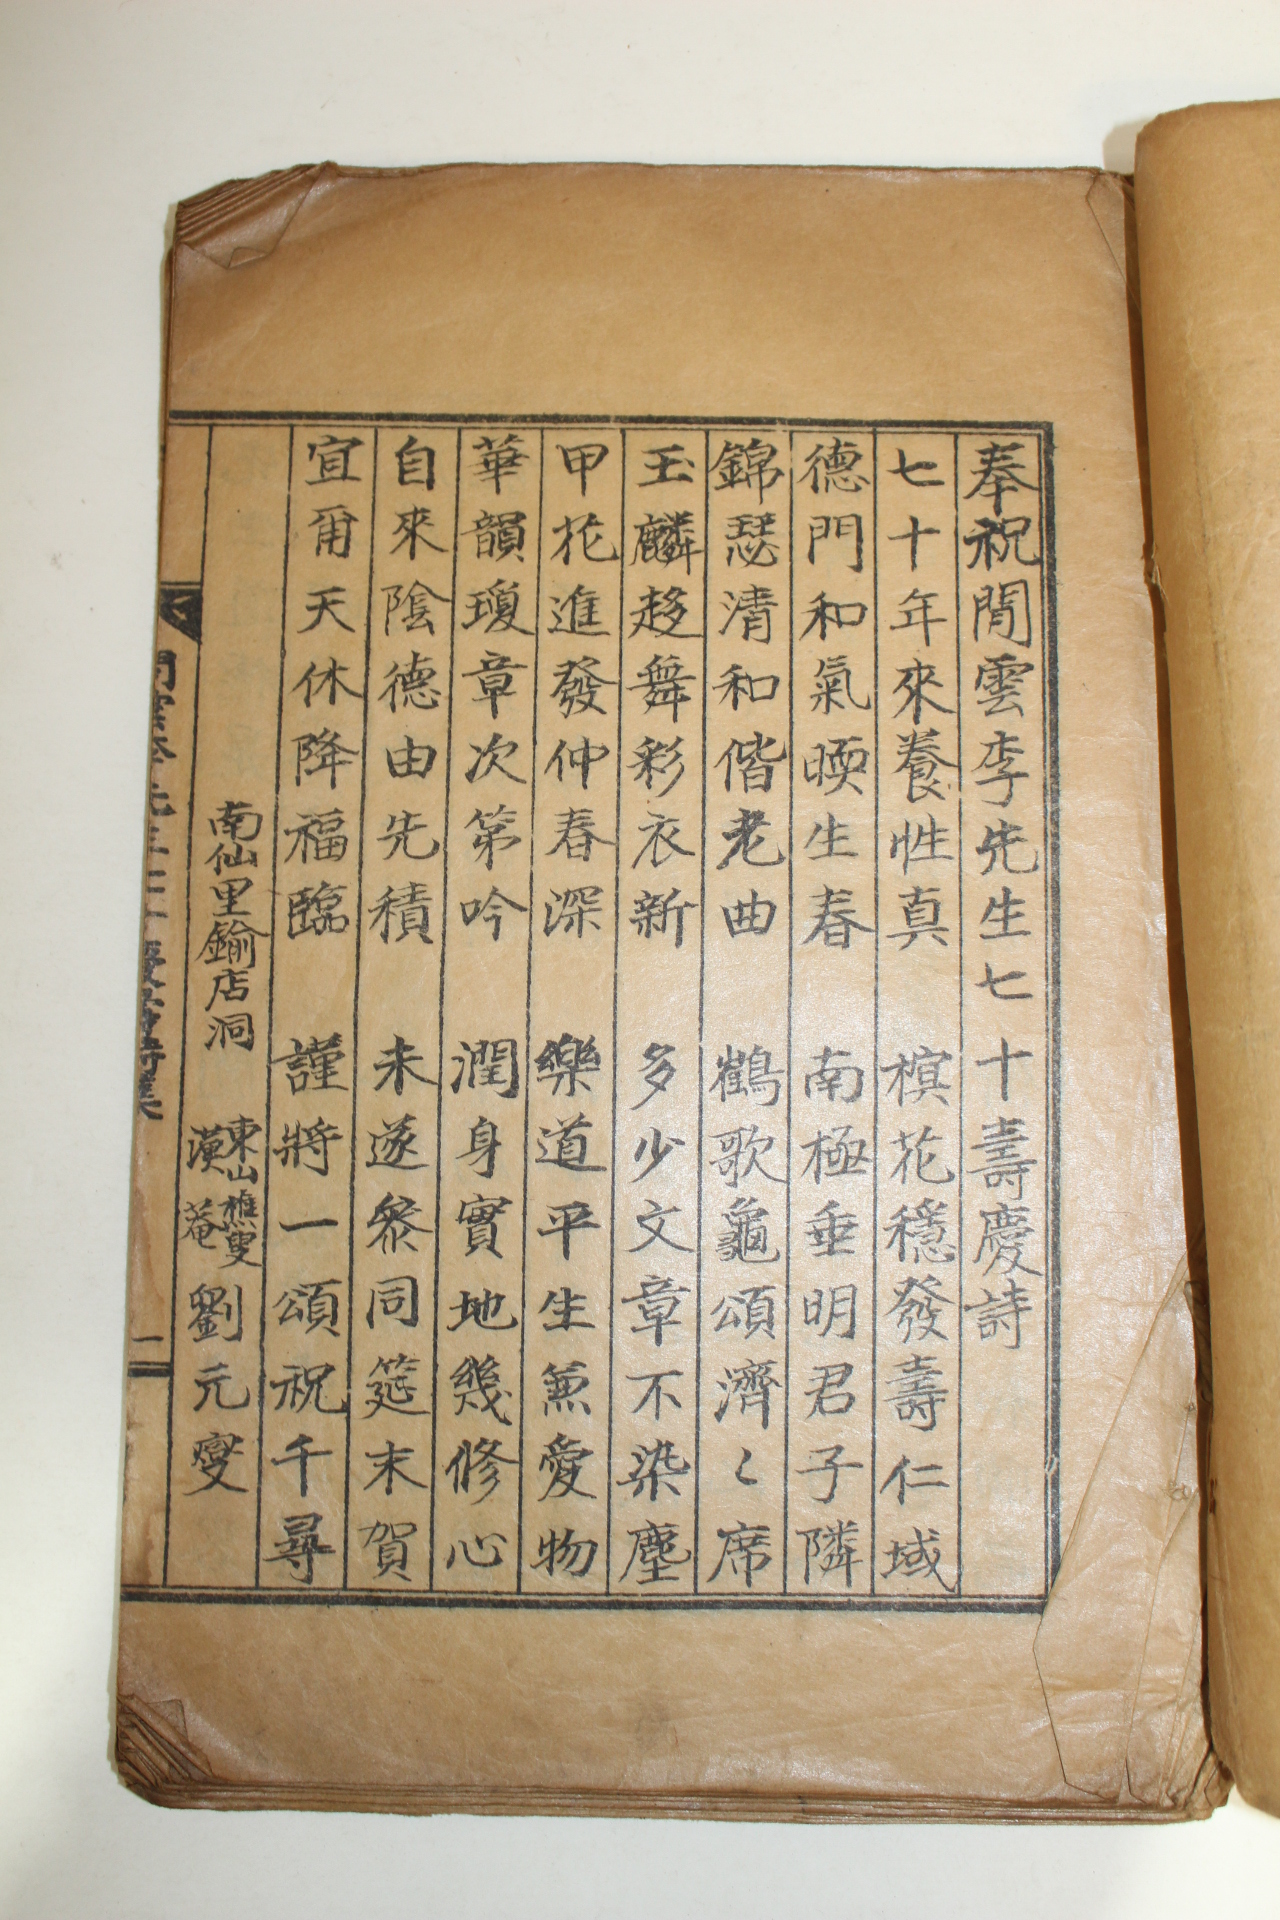 奉祝閒雲李先生七十壽慶詩
七十年來養性真 榠花穩發壽仁域
德門和氣暖生春 南極垂明君子隣
錦瑟清和偕老曲 鶴歌龜頌濟〻席
玉麟趍舞彩衣新 多少文章不染塵
甲花進發仲春深 樂道平生兼愛物
華韻瓊章次第吟 潤身實地幾修心
自來陰德由先積 未遂叅同筵末賀
宜爾天休降福臨 謹將一頌祝千尋
南仙里鍮店洞 東山樵叟
漢菴 劉元燮
一